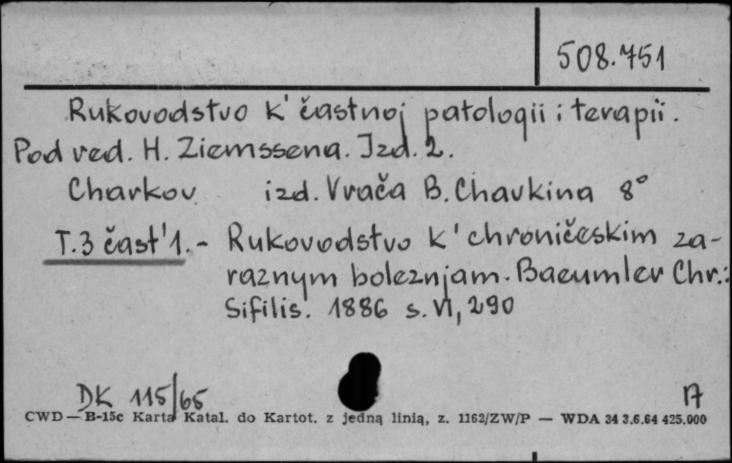 508.751
Rukovodstvo k' častnoj patologii i terapii.
Pod red. H. Ziemssena. Izd. 2.
Charkov izd. Vrača B. Chavkina 8°
T.3 čast'1. - Rukovodstvo k' chroničeskim za-
raznym boleznjam. Baeumler Chr.:
Sifilis. 1886 s. VI, 290
DK 115/65
CWD — B-15c Karta Katal. do Kartot. z jedną linią, z. 1162/ZW/P — WDA 34 3.6.64 425.000